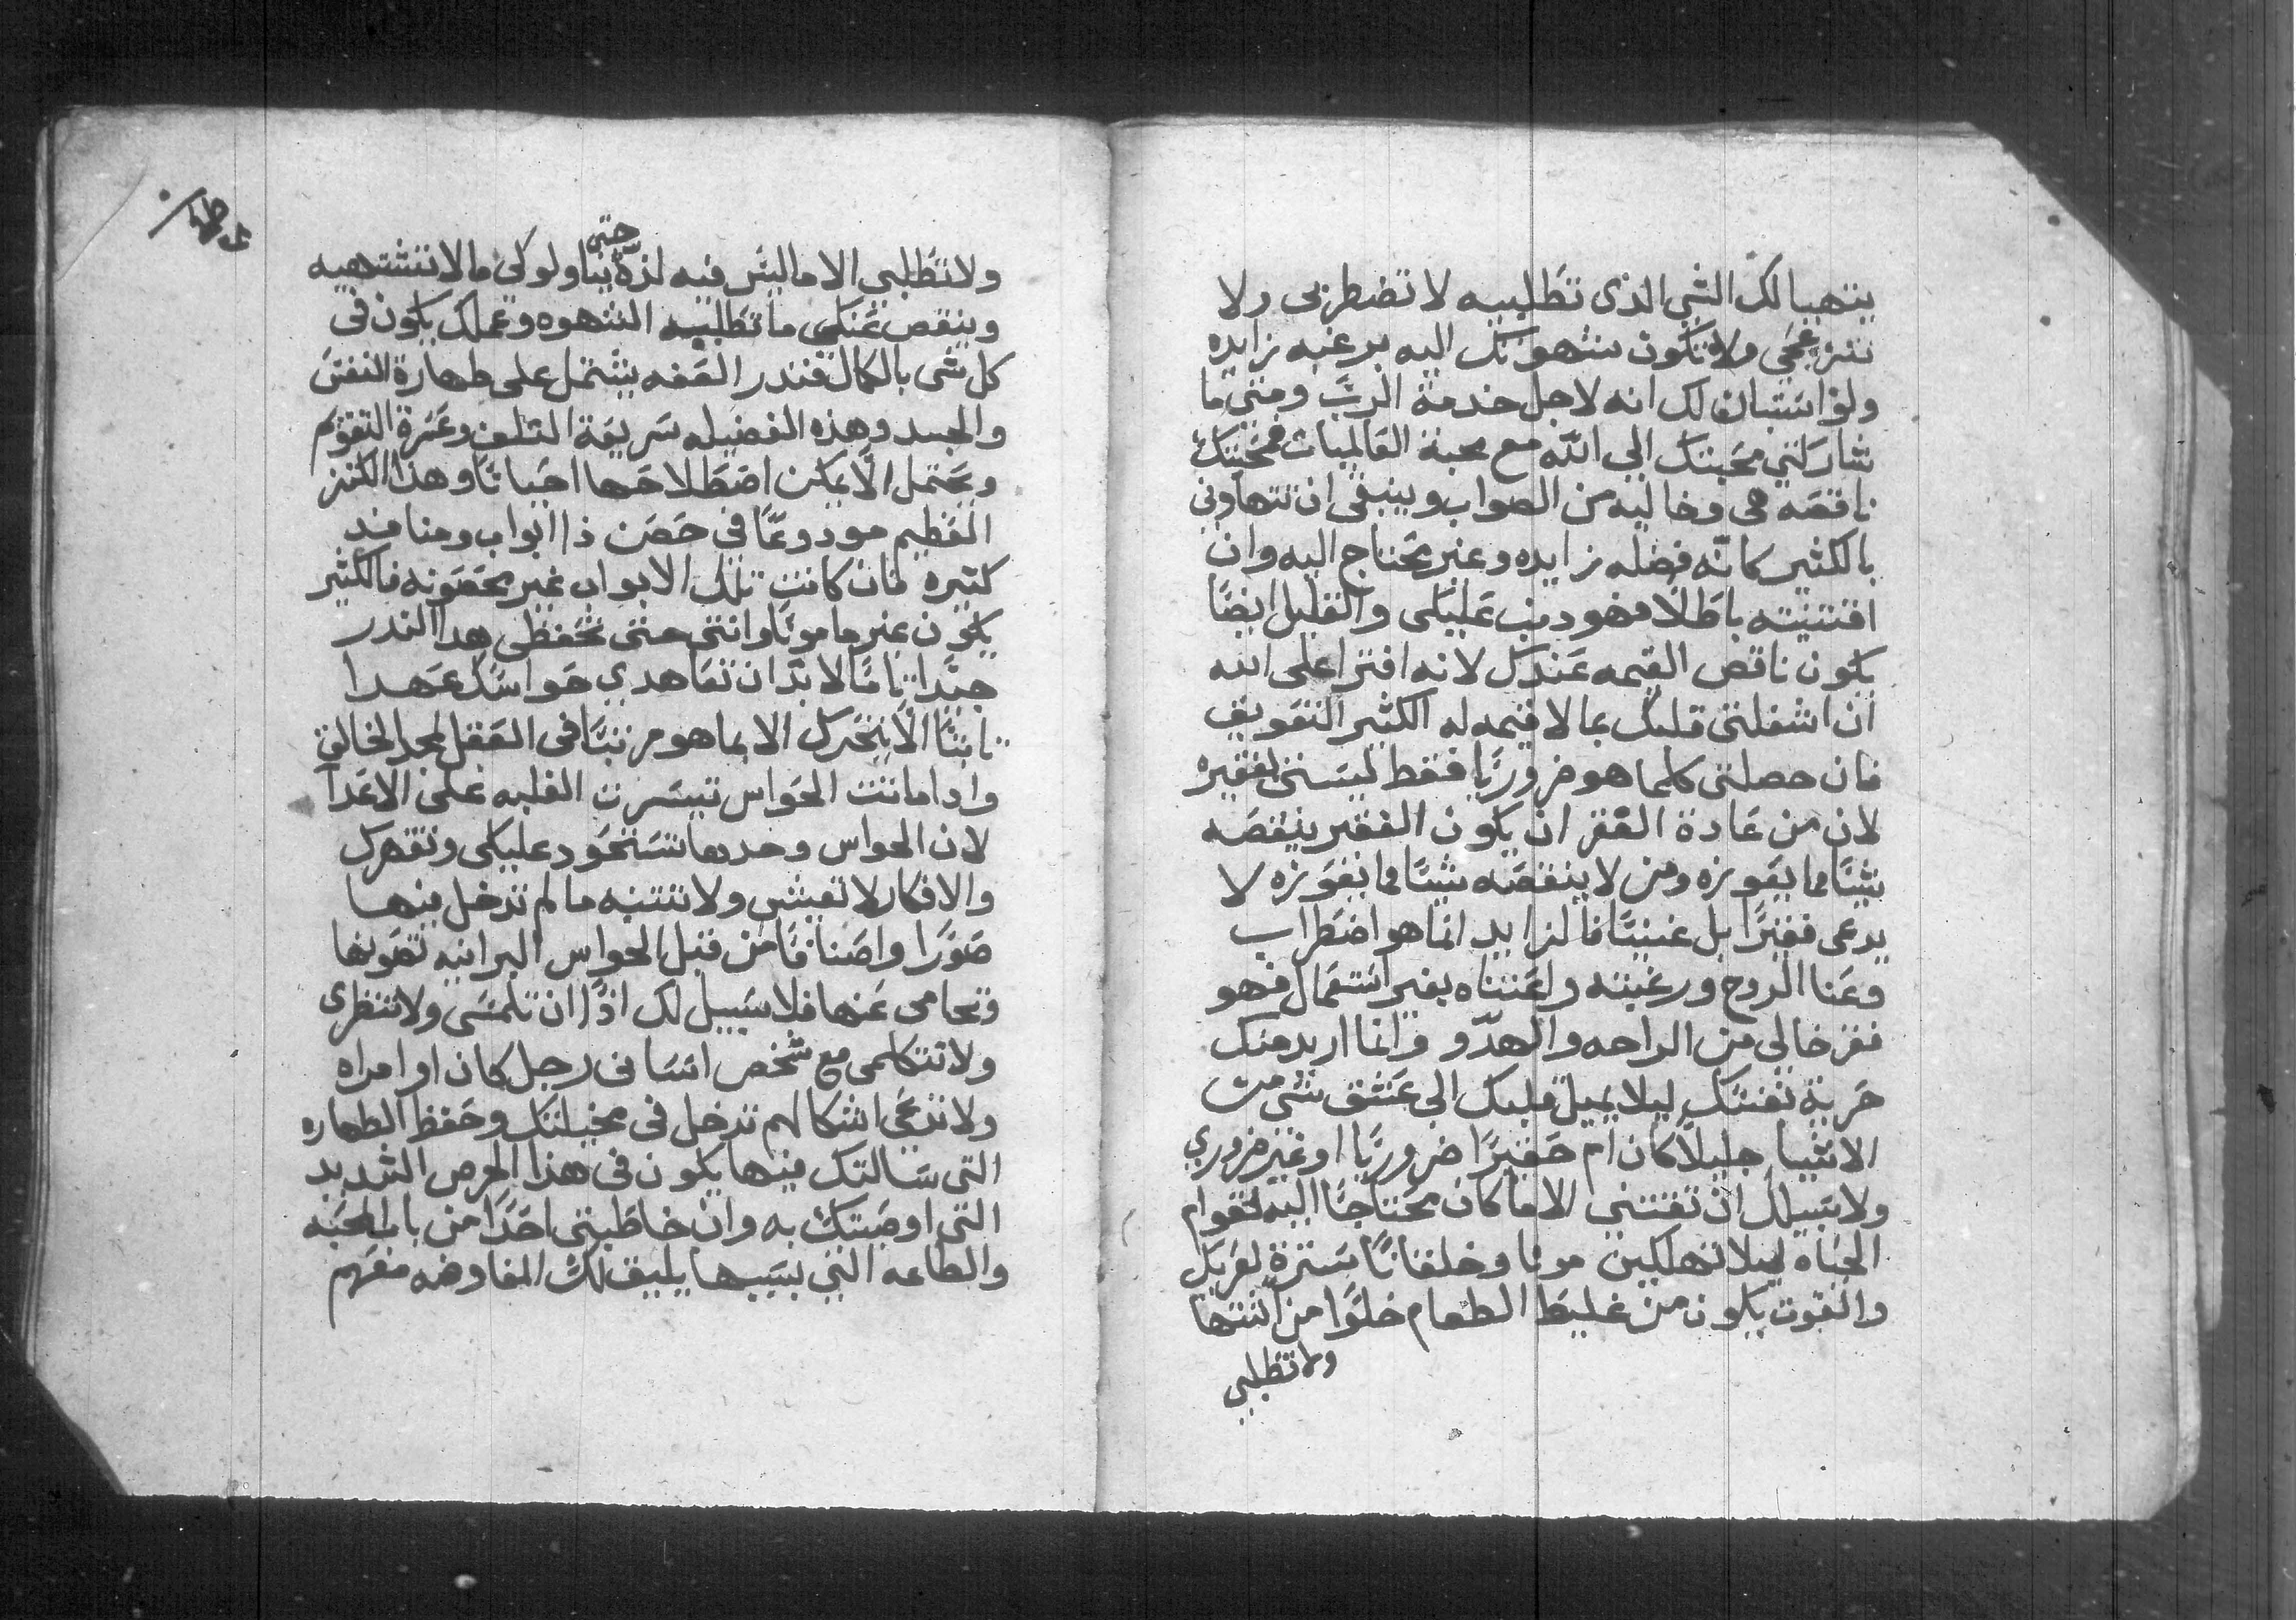 يتهيا لك الشي الذى تطلبيه لا تضطربى ولا
تنزعجي ولا تكون شهوتك اليه برغبه زايده
ولو استبان لك انه لاجل خدمة الرب ومتى ما
شاركتي محبتك الي الله مع محبة العالميات فمحبتك
ناقصه هى وخاليه من الصواب وينبغى ان تتهاونى
بالكثير كانه فضله زايده وغير محتاج اليه وان
اقتنيته باطلا فهو ذنب عليكى والقليل ايضًا
يكون ناقص القيمه عندكى لانه افترا على الله
ان اشغلتى قلبك بما لا قيمه له الكثير التعويق
فان حصلتى كلما هو ضروريًا فقط ليستى بفقيره
لان من عادة الفقر ان يكون الفقير ينقصه
شيًا مما يعوزه ومن لا ينقصه شيًا مما يعوزه لا
يدعى فقيرًا بل غنيًا فالزايد انما هو اضطراب
وعنا الروح ورغبته واعتناه بغير استعمال فهو
فقر خالي من الراحه والهدّو وانما اريد منك
حرية نفسك ليلا يميل قلبك الي عشق شي من
الاشيا جليلاً كان ام حقيرًا ضروريًا او غير ضروري
ولا سبيل لك ان تقتني الا ما كان محتاجًا اليه لقوام
الحياه ليلا تهلكين موتا وخلقانًا سترة لعريك
والقوت يكون من غليظ الطعام خلوًا من اشتها
ولا تطلبي
ولا تطلبي الا ما ليس فيه لذه حتى يناولوكى ما لا تشتهيه
وينقص عنكى ما تطلبيه الشهوه وعملك يكون فى
كل شى بالكمال فندر العفه يشتمل على طهارة النفس
والجسد وهذه الفضيله سريعة التلف وعسرة التقوم
ويحتمل الا يمكن اصطلاحها احيانًا وهذا الكنز
العظيم مودوعًا في حصن ذا ابواب ومنافد
كثيره فان كانت تلك الابواب غير محصونه فالكثير
يكون غير مامونًا وانتى حتى تحفظى هدا الندر
جيدًا تامًا لا بدّ ان تعاهدي حواسك عهدا
ثابتًا الا يتحرك الا بما هو مرتبًا فى العقل لمجد الخالق
وادا ماتت الحواس تيسرت الغلبه على الاعدا
لان الحواس وحدها تستحود عليكى وتقهرك
والافكار لا تعيش ولا تنتبه ما لم تدخل فيها
صورًا واصنافًا من قبل الحواس البرانيه تصونها
وتحامى عنها فلا سبيل لك اذًا ان تلمسى ولا تنظرى
ولا تتكلمى مع شخص انسانى رجل كان او امراه
ولا تدعى اشكالهم تدخل فى مخيلتك وحفظ الطهاره
التى سالتك فيها يكون فى هذا الحرص الشديد
التى اوصيتك به وان خاطبتى احدًا من باب المحبه
والطاعه التي بسببها يليق لك المفاوضه معهم